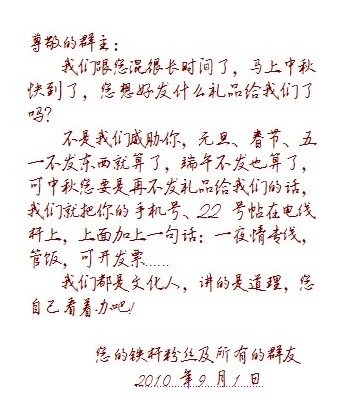 尊敬的群主：
我们跟您混很长时间了，马上中秋
快到了，您想好发什么礼品给我们了
吗？
不是我们威胁你，元旦、春节、五
一不发东西就算了，端午不发也算了，
可中秋您要是再不发礼品给我们的话，
我们就把你的手机号、22 号帖在电线
杆上，上面加上一句话：一夜情专线，
管饭，可开发票......
我们都是文化人，讲的是道理，您
自己看着办吧！
您的铁杆粉丝及所有的群友
2010 年 9 月 1 日